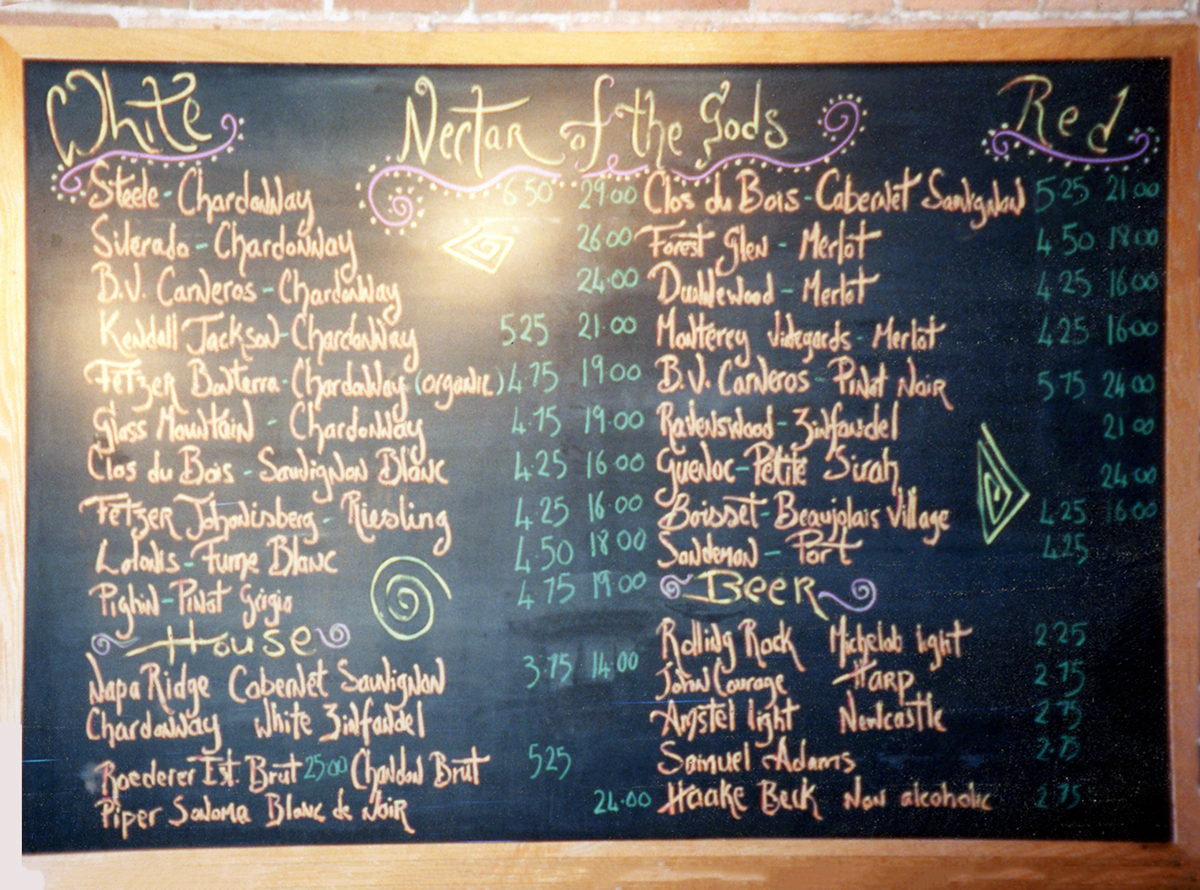 White
Nectar of the Gods
Red
Steele - Chardonnay 6 50 29.00
Silverado - Chardonnay 26.00
B.V. Carneros - Chardonnay 24.00
Kendall Jackson - Chardonnay 5 25 21.00
Fetzer Bonterra - Chardonnay (organic) 4 75 19.00
Glass Mountain - Chardonnay 4.75 19.00
Clos du Bois - Sauvignon Blanc 4 25 16.00
Fetzer Johanisberg - Riesling 4 25 16.00
Lolonis - Fume Blanc 4.50 18.00
Pighin - Pinot Grigio 4 75 19.00
House
Napa Ridge Cabernet Sauvignon 3.75 14.00
Chardonnay White Zinfandel
Roederer Est. Brut 25 00 Chandon Brut 5 25
Piper Sonoma Blanc de Noir 24.00
Clos du Bois - Cabernet Sauvignon 5 25 21.00
Forest Glen - Merlot 4 50 18.00
Dunnewood - Merlot 4 25 16.00
Monterey Vinegards - Merlot 4 25 16.00
B.V. Carneros - Pinot Noir 5 75 24.00
Ravenswood - Zinfandel 21 00
Guenoc - Petite Sirah 24.00
Boisset - Beaujolais Village 4.25 16.00
Sandeman - Port 4.25
Beer
Rolling Rock Michelob light 2 25
John Courage Harp 2.75
Amstel light Newcastle 2 75
Samuel Adams 2.75
Haake Beck Non alcoholic 2 75